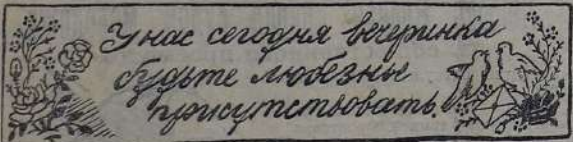 У нас сегодня вечеринка
будьте любезны
присутствовать.